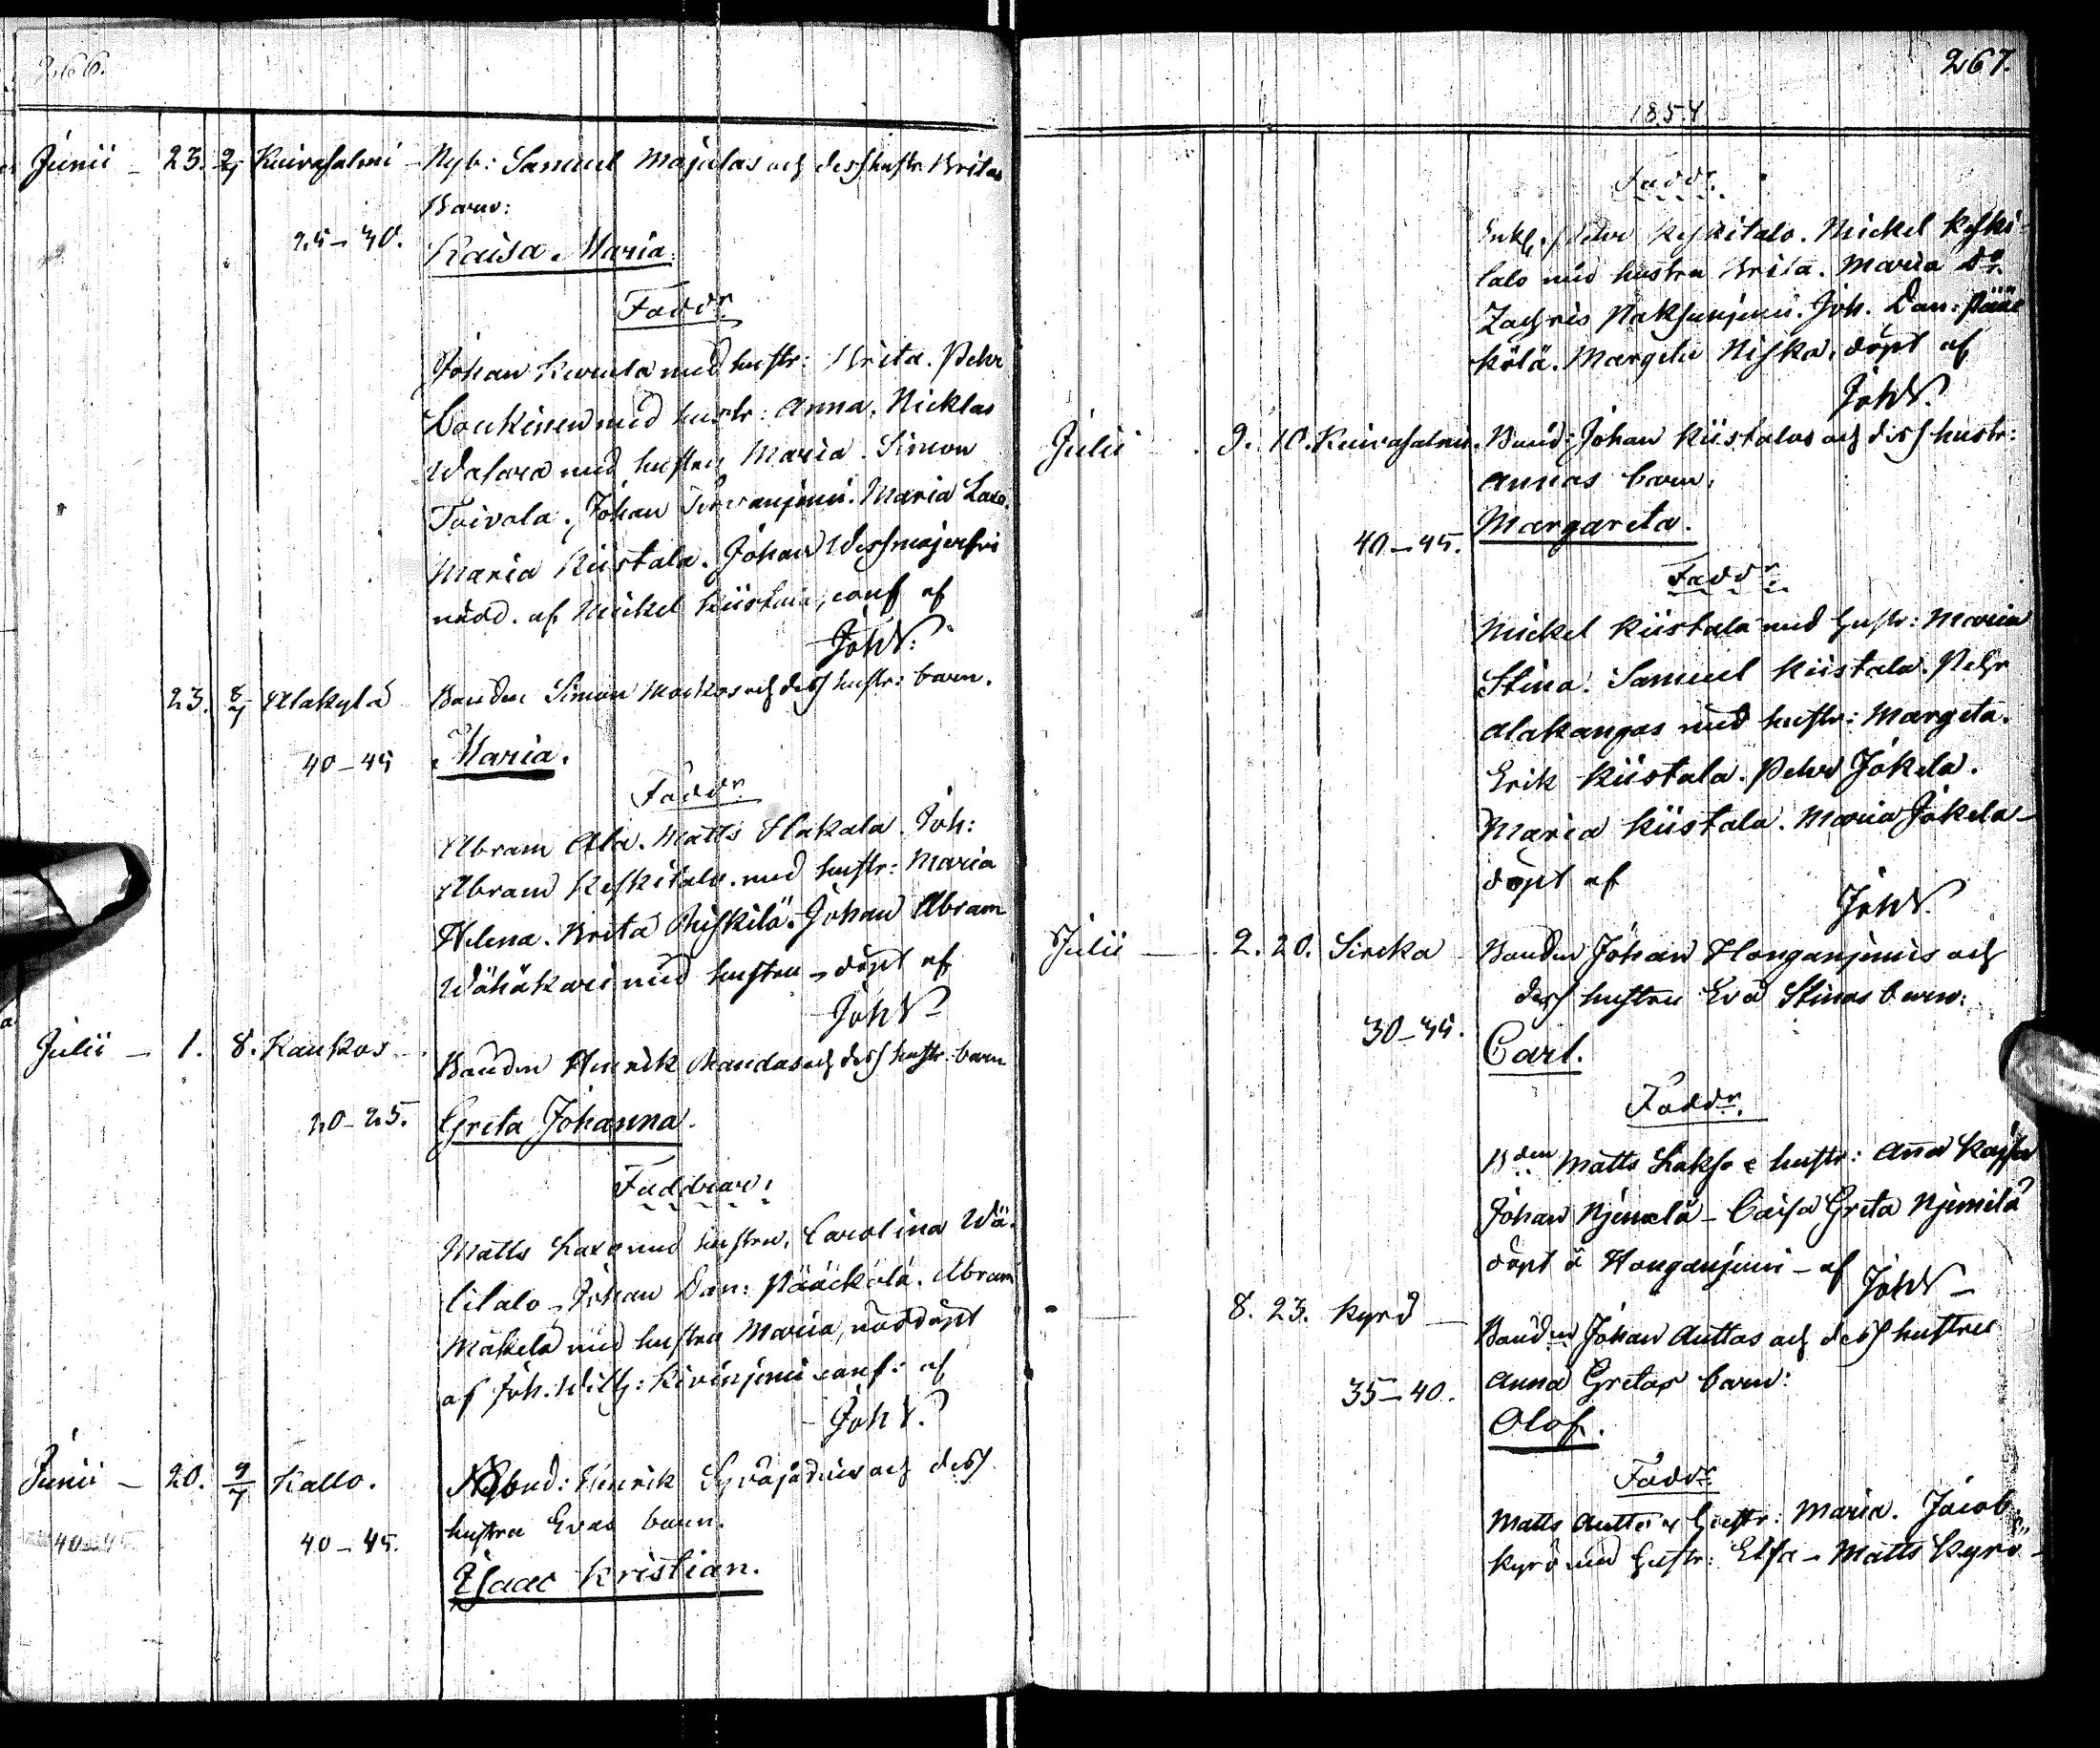 266.
Junii - 23. 2/7 Kuivasalmi - Nyb: Samuel Majalas och dess hustr. Britas
Barn:
25-30. Kaisa Maria.
Faddr
Johan Kumla med hustr: Brita. Pehr
Loukinen med hustr: Anna. Nicklas
Wasara med hustru Maria. Simon
Toivola. Johan Maria Laxo.
Maria Kiistala. Johan
nödd. af Mickel Kiistala, conf af
JohW:
23. 8/7 Alakylä Bonden Simon och dess hustr: barn.
40-45 Maria.
Faddr
Abram Ala. Matts Hakala. Joh:
Abram Keskitalo med hustr: Maria
Helena. Brita Niskilä. Johan Abram
Wähäkari med hustru - döpt af
JohW
Julii - 1. 8. Kaukos - Bonden Henrik och dess hustr. barn
20-25. Greta Johanna.
Faddrar:
Matts Laxo med hustru. Carolina Wä-
litalo - Johan Dan: Pääckölä. Abram
Mäkelä med hustru Maria, nöddöpt
af Joh. Wilh: Kivinjemi conf: af
JohW.
Junii - 20. 9/7 Kallo. Nybud: Henrik och dess
hustru Evas barn.
40-45. Isaac Kristian.
267.
1854
Faddr.
Enkl. Pehr Keskitalo. Mickel Keski-
talo med hustru Brita. Maria Do.
Zachris Joh. Dan: Pääc
kölä. Margeta Niska, döpt af
JohW.
Julii - 9. 10. Kuivasalmi. Bond: Johan Kiistalas och dess hustr:
Annas barn.
40-45. Margareta.
Faddr.
Mickel Kiistala med hustr: Maria
Stina. Samuel Kiistala. Pehr
Alakangas med hustr: Margeta.
Erik Kiistala. Pehr Jokela.
Maria Kiistala. Maria Jokela -
döpt af
JohW.
Julii - 2. 20. Sircka Bonden Johan Honganjemis och
dess hustru Eva Stinas barn:
30-35. Carl.
Faddr.
Bden Matts Lakso & hustr: Anna Kajsa
Johan Njemelä - Caisa Greta Njemilä
döpt i Honganjemi - af
JohW -
8. 23. Kyrö - Bonden Johan Auttos och dess hustrus
Anna Gretas barn:
35-40. Olof.
Faddr
Matts Autto & hustr: Maria. Jacob
Kyrö med hustr: Elsa - Matts Kyrö -